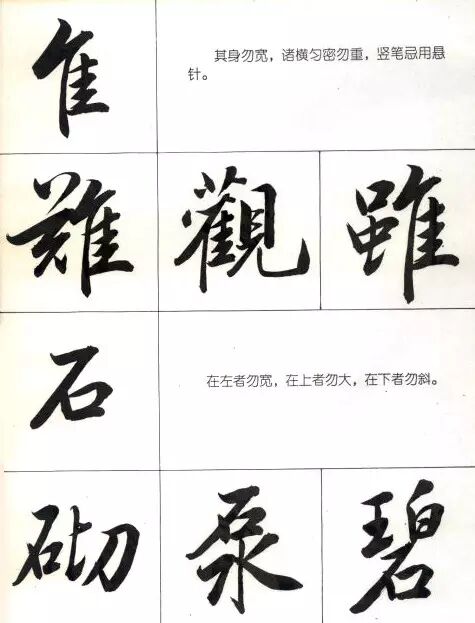 隹
其身勿宽，诸横匀密勿重，竖笔忌用悬
针。
難 觀 雖
石
在左者勿宽，在上者勿大，在下者勿斜。
砌 泵 碧